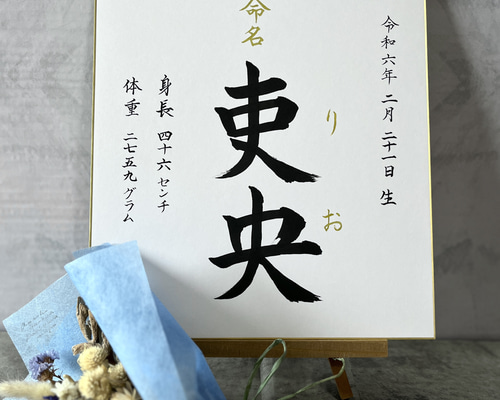 令和六年 二月 二十一日 生
命名
吏央
りお
身長 四十六センチ
体重 二七五九グラム